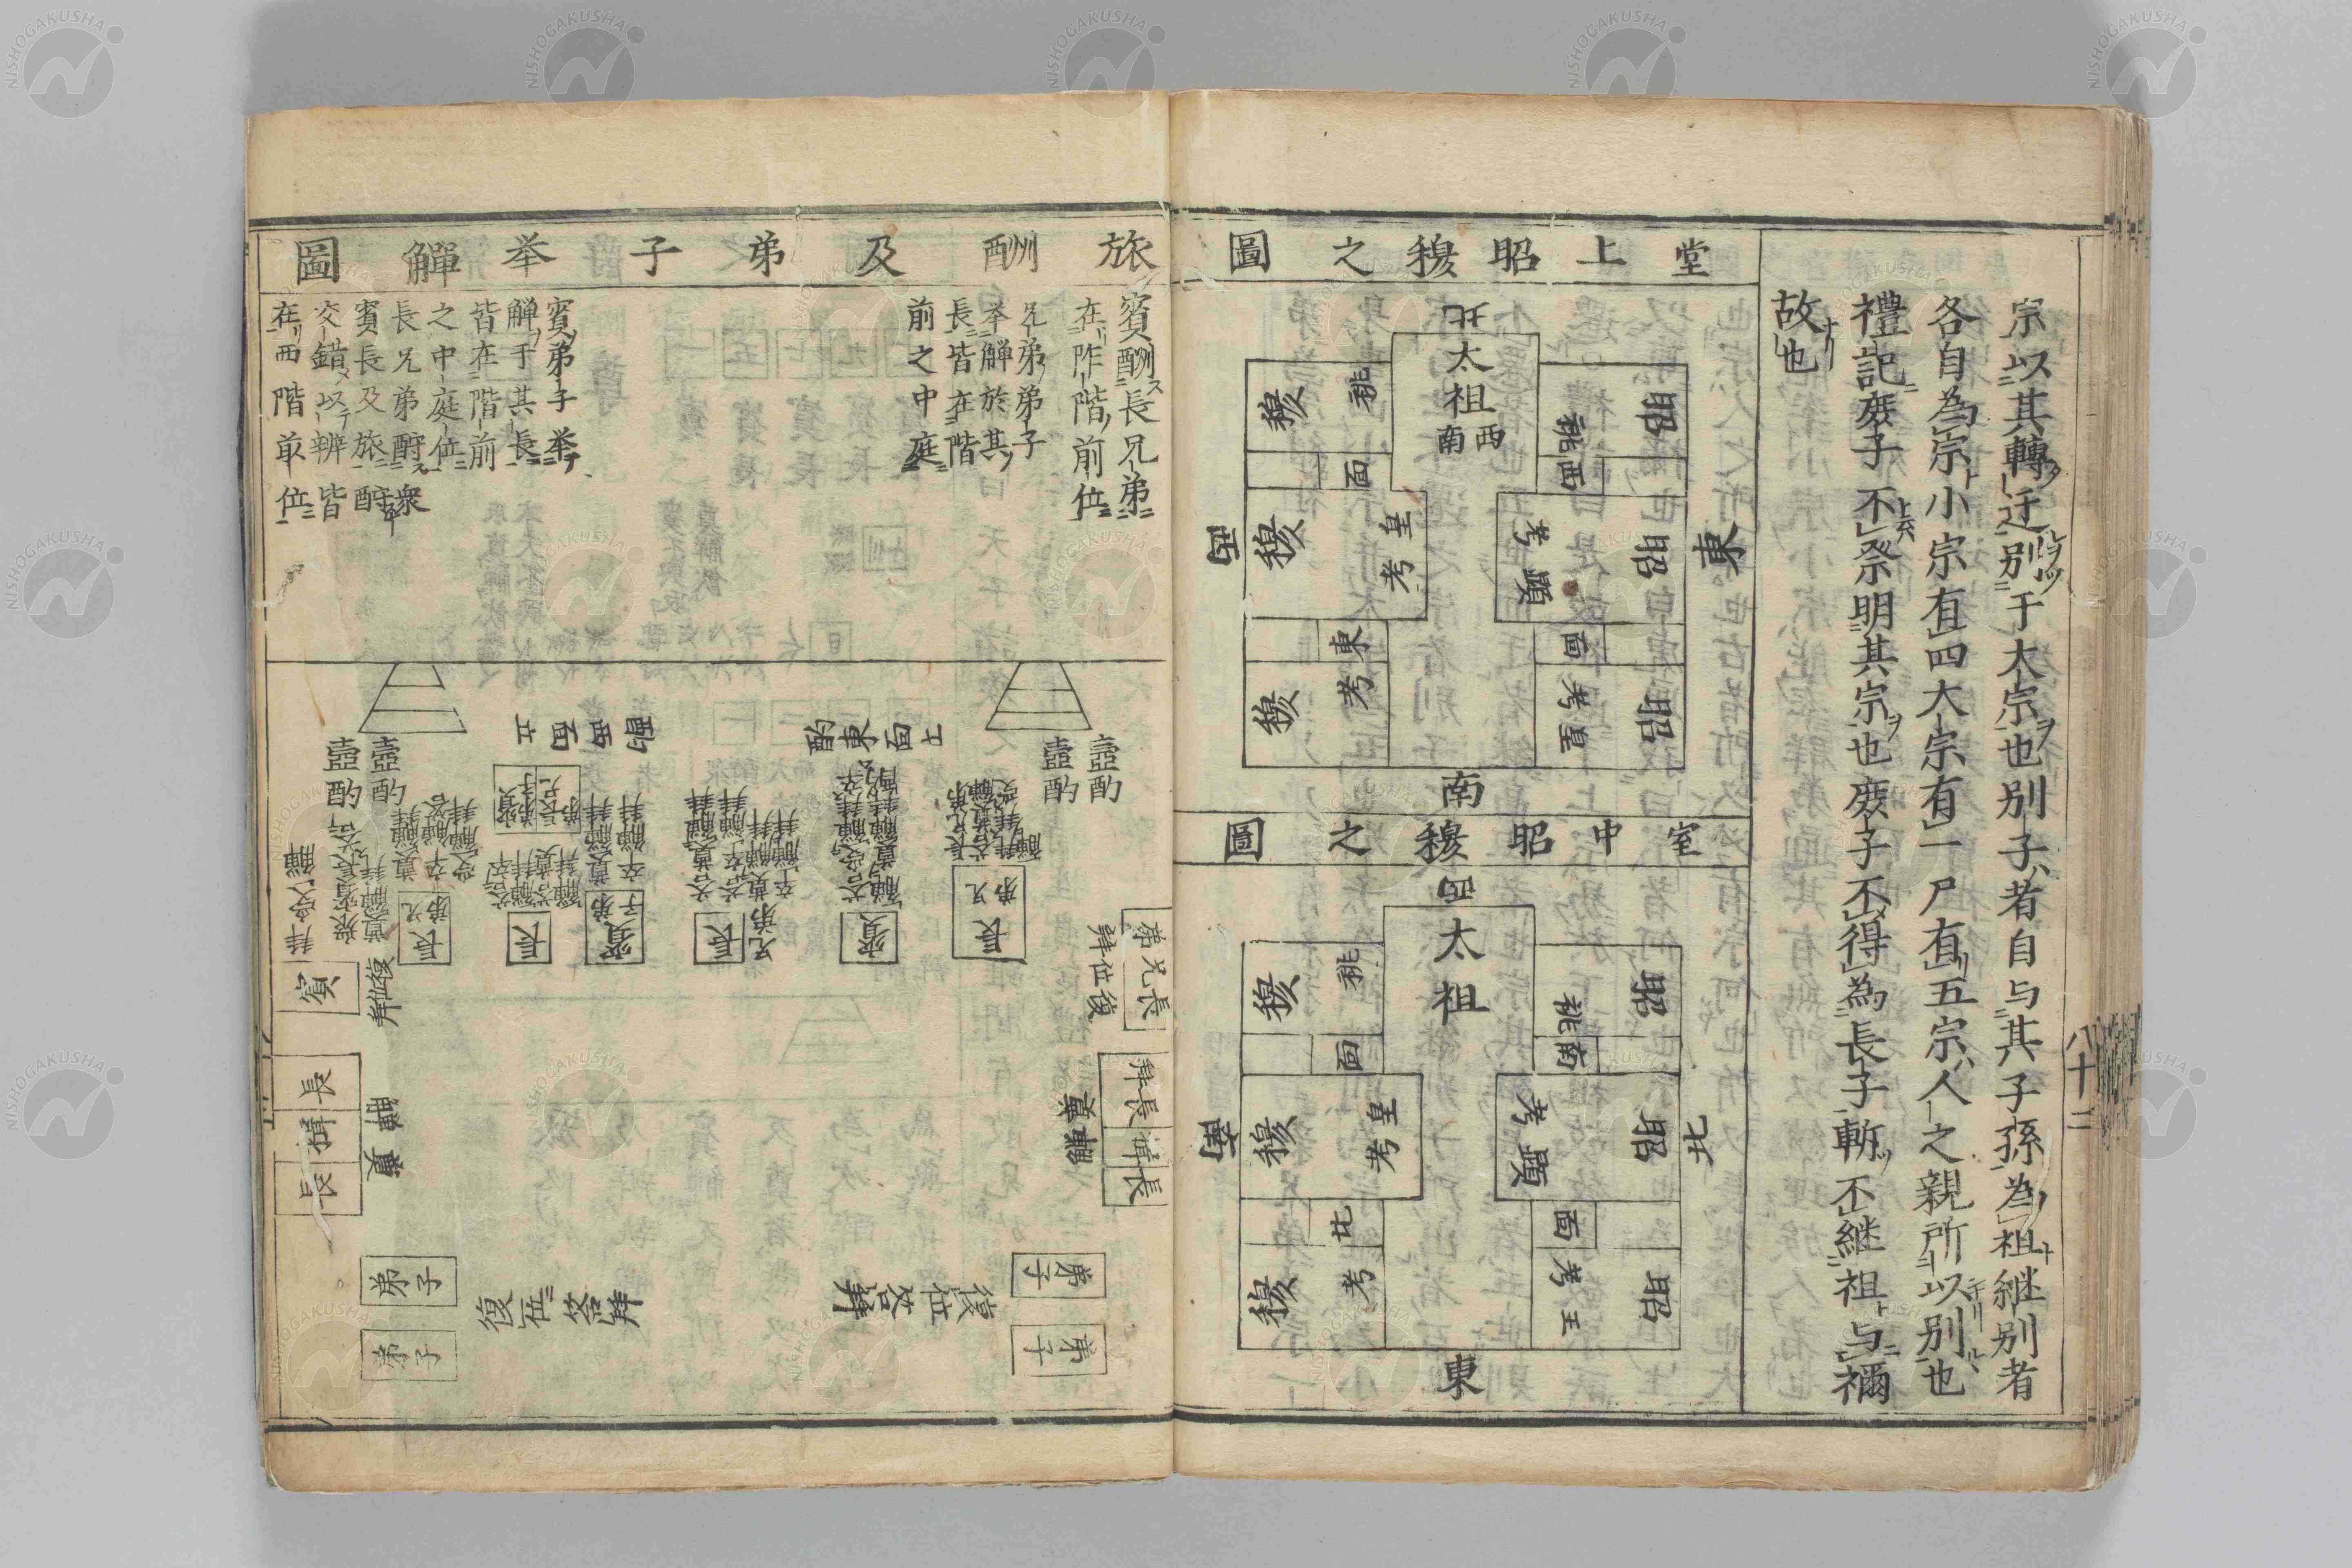 宗以其轉迁別于大宗也別子者自与其子孫為祖継別者
各自為宗小宗有四大宗有一尸有五宗人之親所以別也
禮記庻子不祭明其宗也庻子不得為長子斬不継祖与禰
故也
八十二
堂上昭穆之圖
北
太祖
南西
昭
祧
西
面
昭
顯考
昭
皇考
東
穆
祧
面
穆
皇考
東
穆
考
西
南
室中昭穆之圖
西
太祖
昭
祧
南
面
昭
顯考
昭
考王
北
穆
祧
面
穆
皇考
北
穆
考
南
東
旅酬及弟子举觶圖
賓酬長兄弟
在阼階前位
兄弟弟子
举觶於其
長皆在階
前之中庭
賓弟子举
觶于其長
皆在階前
之中庭位
長兄弟酧衆
賓長及旅酧
交錯以辨皆
在西階前位
壺酌
壺酌
酌東面立
酬西面立
壺酌
壺酌
長兄弟
賓
長
兄弟
賓弟子
長
長兄弟
賓
復位拜
長兄弟
復位拜
長
揖
長
奠觶
長
揖
長
奠觶
弟子
弟子
復位答拜
復位答拜
弟子
弟子
NISHOGAKUSHA